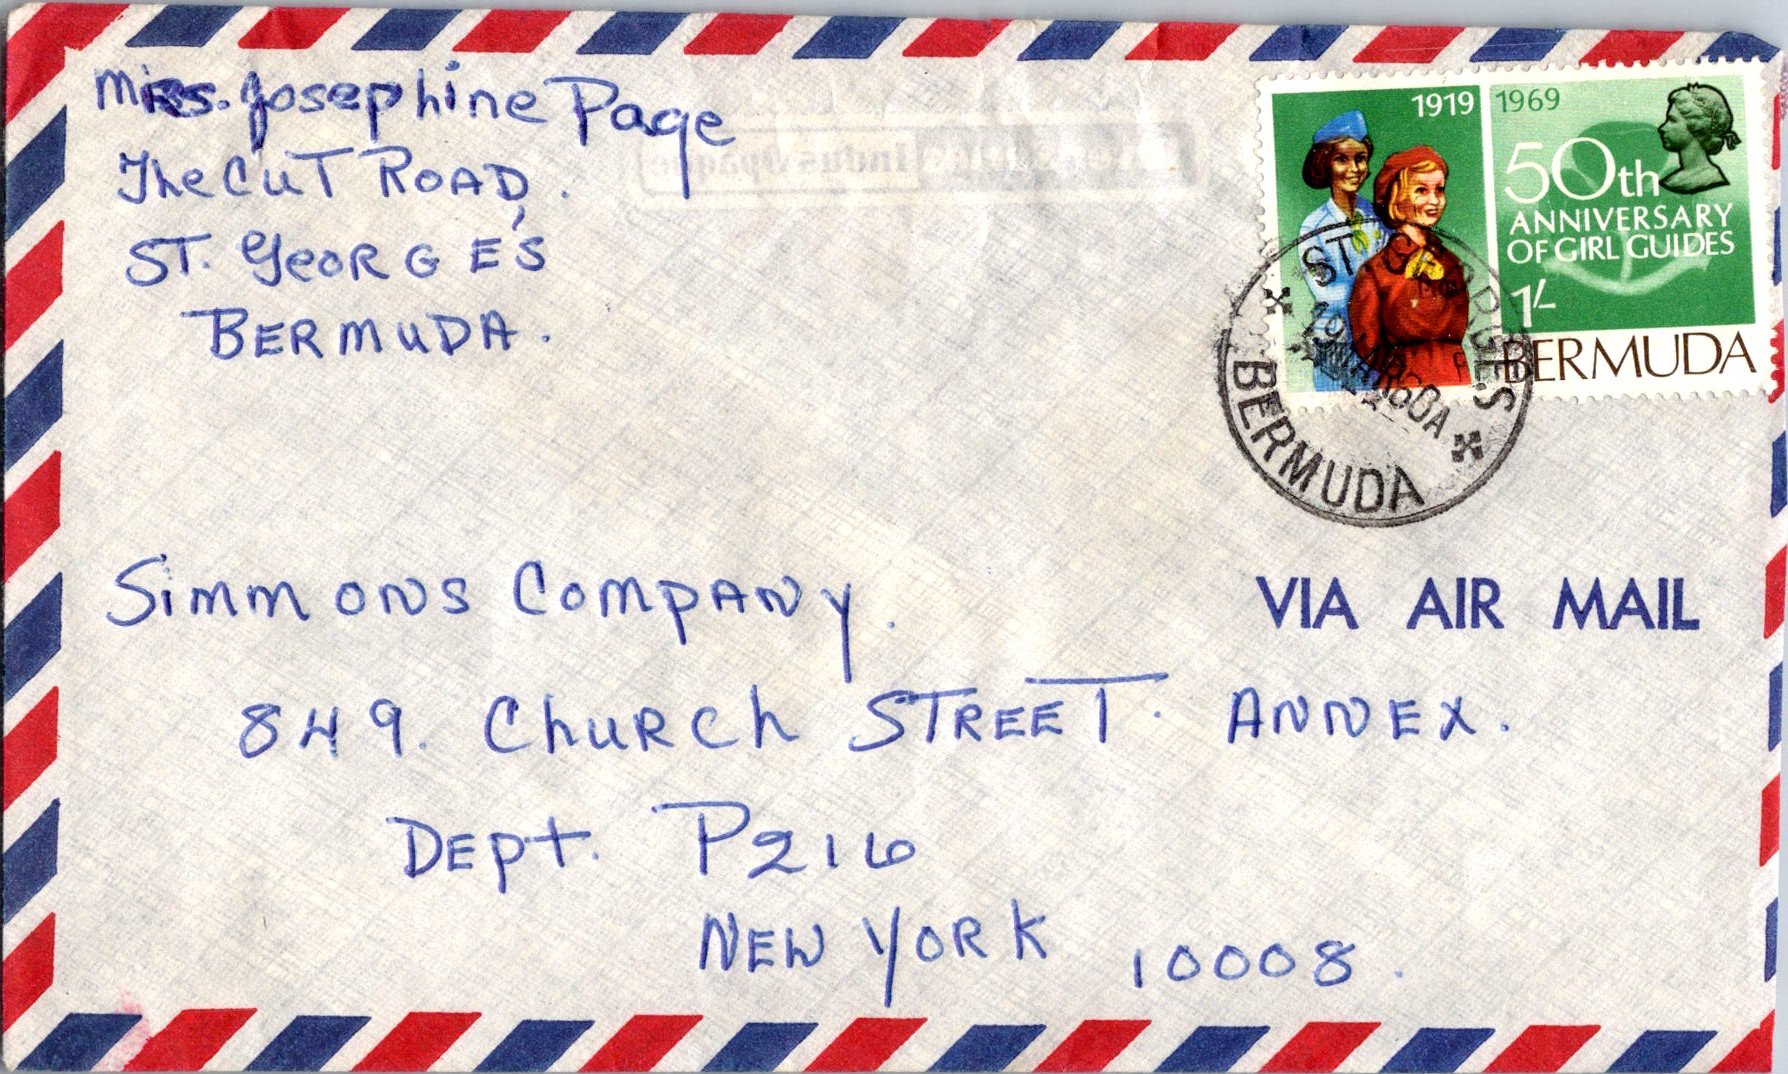 Mrs. Josephine Page
The Cut Road,
St. George's
Bermuda.
1919 1969
50th
ANNIVERSARY
OF GIRL GUIDES
1/-
BERMUDA
ST. GEORGE'S
BERMUDA
VIA AIR MAIL
Simmons Company.
849. Church Street. Annex.
Dept. P216
New York 10008.